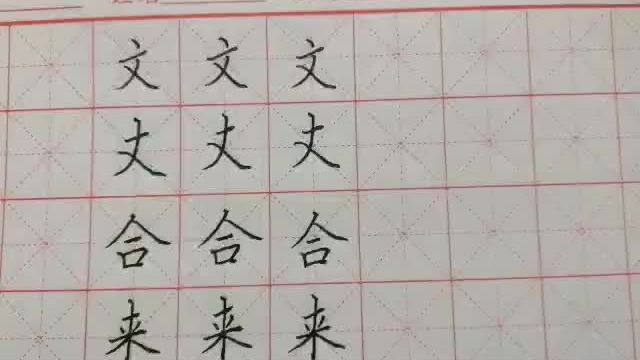 文文文
丈丈丈
合合合
来来来